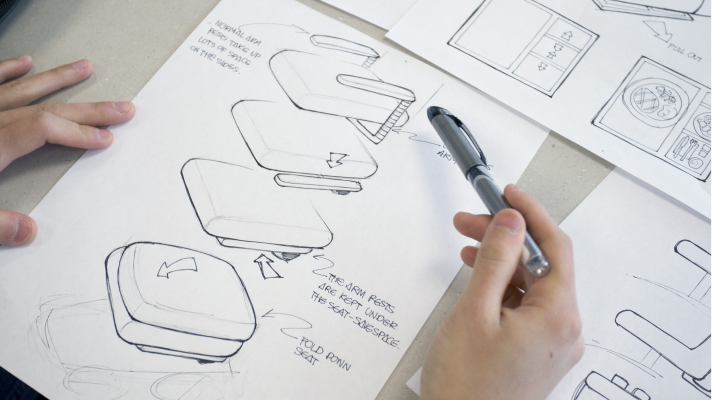 NORMAL ARM
RESTS TAKE UP
LOTS OF SPACE
ON THE SIDES.
PULL OUT
THE ARM RESTS
ARE KEPT UNDER
THE SEAT-SAVESPACE.
FOLD DOWN
SEAT